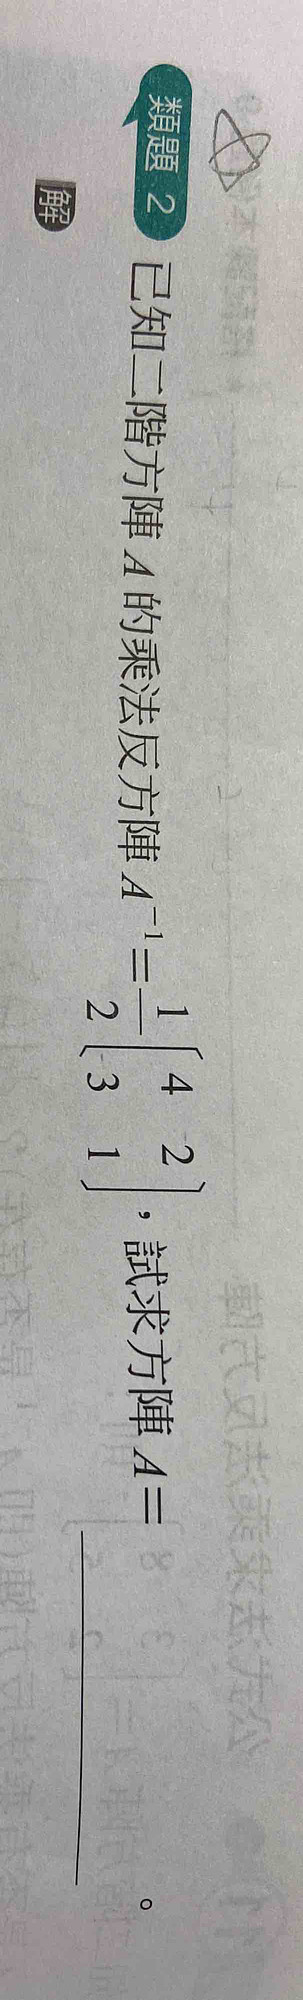 類題 2 已知二階方陣 A 的乘法反方陣 A⁻¹ = 1/2 [4 2; 3 1],試求方陣 A = ________。
解